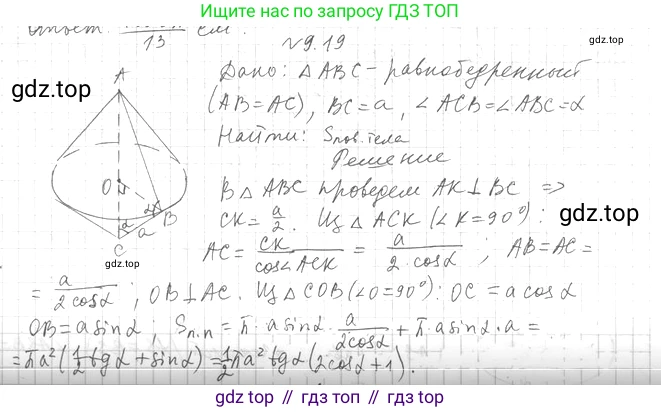 Ищите нас по запросу GDZ.TOP
Ответ: 13 см.
№9.19
gdz.top
Дано: △ ABC – равнобедренный
(AB=AC), BC=a, ∠ ACB=∠ ABC=α
Найти: Sпов.тела
Решение
В △ ABC проведем AK⊥BC =>
CK= a/2. Из △ ACK (∠K=90°):
gdz.top
AC= CK/cos∠ACK = a/(2·cosα) ; AB=AC=
= a/(2cosα) ; OB⊥AC. Из △ COB (∠O=90°): OC=a cosα
OB=a sinα ; Sп.п=π·a sinα· a/(2cosα) + π·a sinα·a =
=πa²(1/2 tgα+sinα)=1/2 πa² tgα(2cosα+1).
A
O
α
B
α
a
C
gdz.top
gdz.top // гдз.топ // gdz.top // гдз.топ